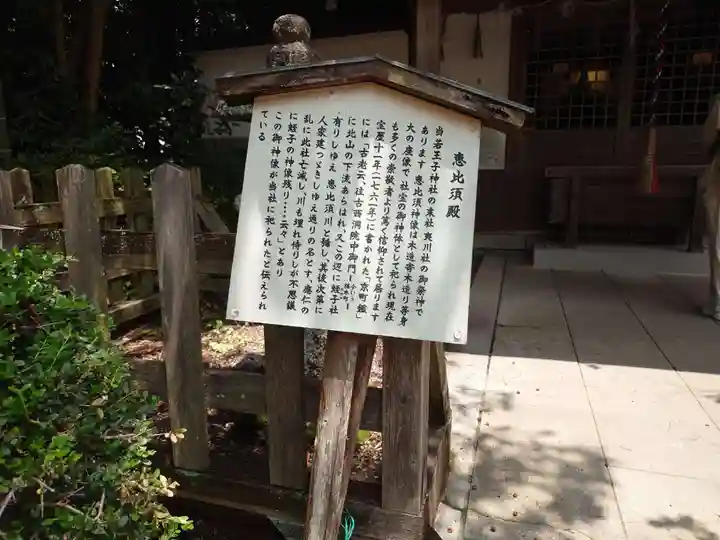 恵比須殿
当若王子神社の末社 夷川社の御祭神で
あります 恵比須神像は木造寄木造り等身
大の座像で、社宝の御神体として祀られ現在
も多くの崇敬者より篤く信仰されて居ります
宝暦十一年(一七六一年)に書かれた「京町鑑」
には「古老云、往古西洞院中御門ー
に北山の下流あらはれ、又この辺に蛭子社
有りしゆえ 恵比須川と稱し、其後次第に
人家建つゞきしゆえ通りの名とす、應仁の
乱に此社亡滅し、川も埋れ侍りしが不思議
に蛭子の神像残り…云々」とあり
この御神像が当社に祀られたと伝えられ
ている